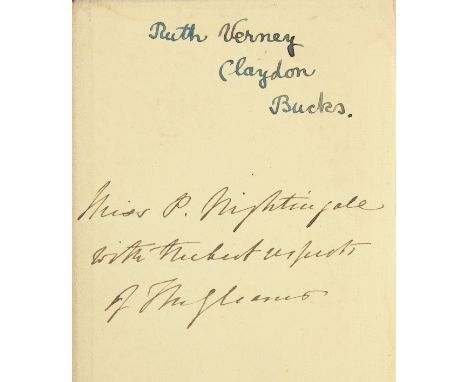 Ruth Verney
Claydon
Bucks.
Miss P. Nightingale
with the best respects
of